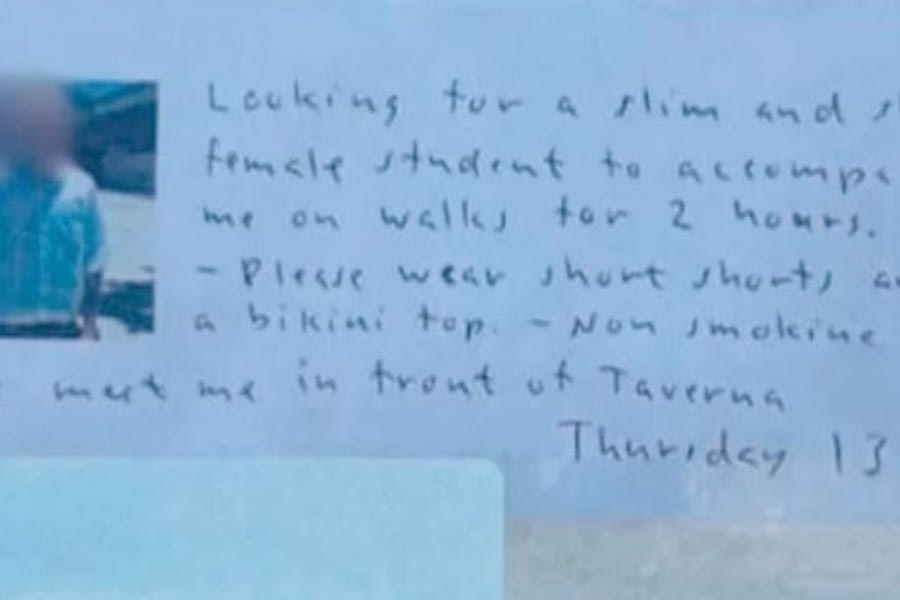 Looking for a slim and
female student to
me on walks for 2 hours.
- Please wear short shorts
a bikini top. - Non smoking
meet me in front of Taverna
Thursday 13